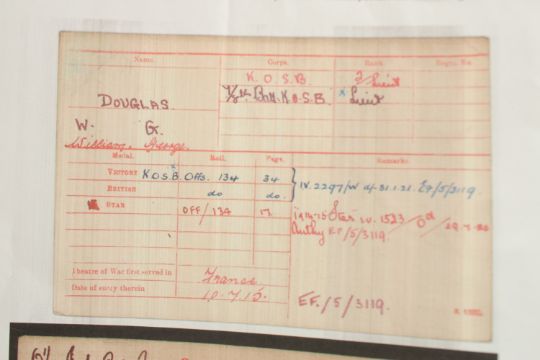 Name. Corps. Rank. Regtl. No.
K.O.S.B 2/Lieut
DOUGLAS Bn. K.O.S.B x Lieut
W. G.
William George
Medal. Roll. Page. Remarks.
VICTORY K.O.S.B. Offs. 134 34
BRITISH do do. IV. 2297/W d/-31.1.21. EF/5/3119.
STAR OFF/134 17. Star IV. 1523
Authy EF/5/3119.
Theatre of War first served in France
Date of entry therein 10.7.15.
EF./5/3119.